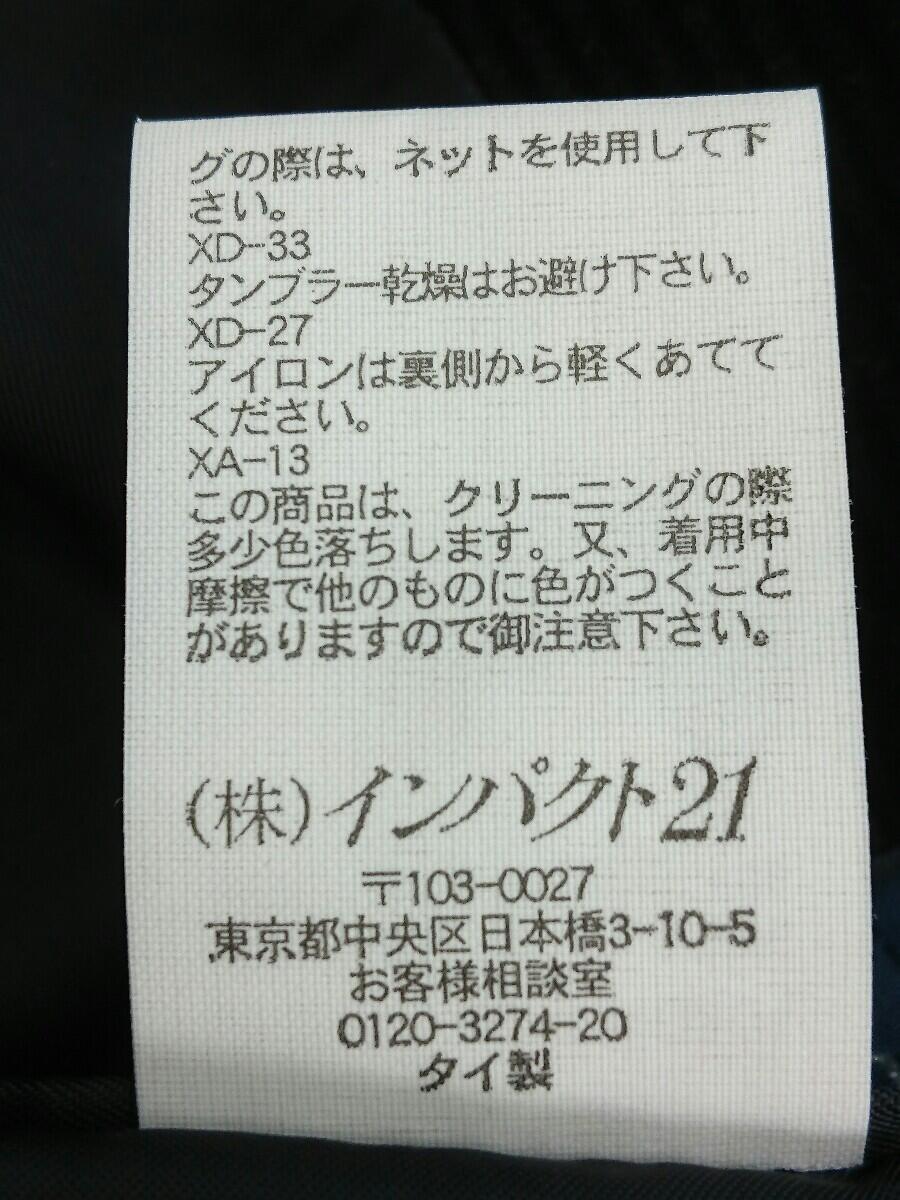 グの際は、ネットを使用して下
さい。
XD-33
タンブラー乾燥はお避け下さい。
XD-27
アイロンは裏側から軽くあてて
ください。
XA-13
この商品は、クリーニングの際
多少色落ちします。又、着用中
摩擦で他のものに色がつくこと
がありますので御注意下さい。
(株)インパクト21
〒103-0027
東京都中央区日本橋3-10-5
お客様相談室
0120-3274-20
タイ製